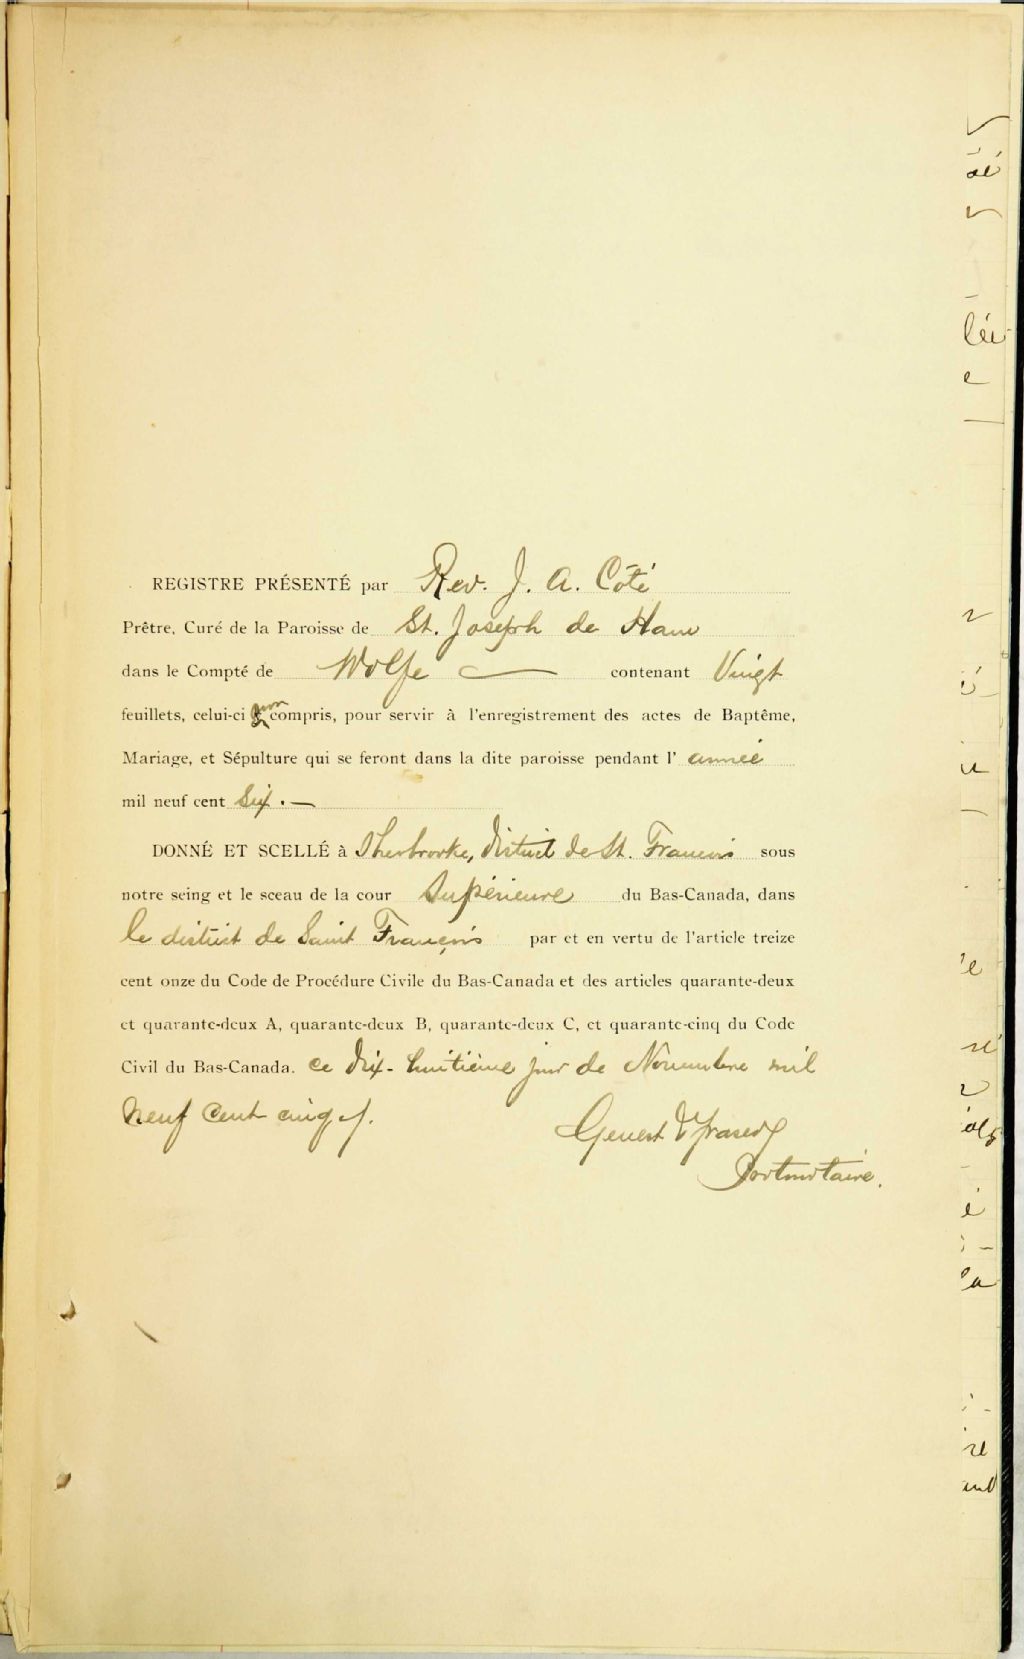 REGISTRE PRÉSENTÉ par Rev. J. A. Côté
Prêtre, Curé de la Paroisse de St. Joseph de Ham
dans le Compté de Wolfe contenant Vingt
feuillets, celui-ci non compris, pour servir à l'enregistrement des actes de Baptême,
Mariage, et Sépulture qui se feront dans la dite paroisse pendant l' année
mil neuf cent Six . —
DONNÉ ET SCELLÉ à Sherbrooke, district de St. François sous
notre seing et le sceau de la cour Supérieure du Bas-Canada, dans
le district de Saint François par et en vertu de l'article treize
cent onze du Code de Procédure Civile du Bas-Canada et des articles quarante-deux
et quarante-deux A, quarante-deux B, quarante-deux C, et quarante-cinq du Code
Civil du Bas-Canada. ce dix-huitième jour de Novembre mil
neuf cent cinq
Genest & Fraser
Protonotaire.